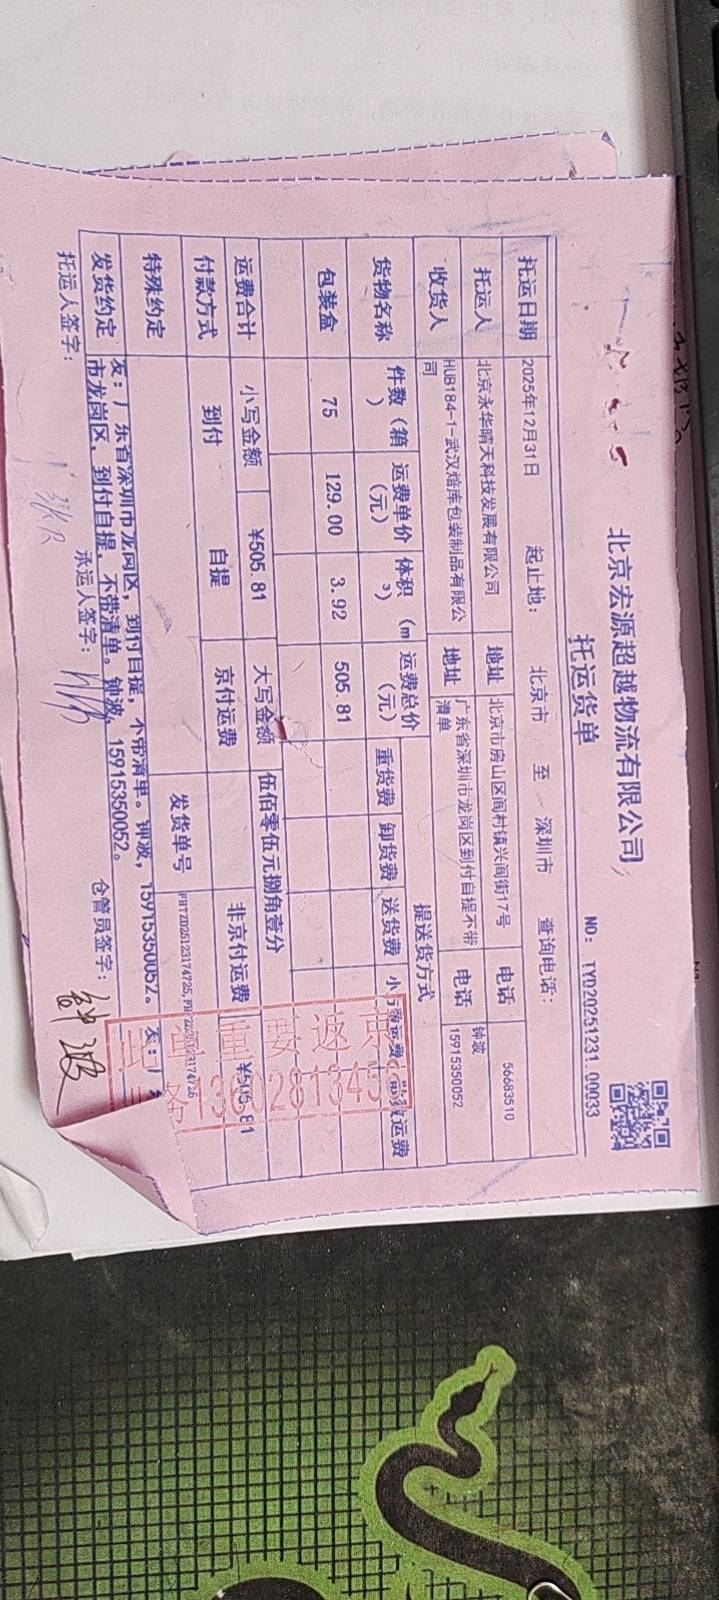 北京宏源超越物流有限公司
托运货单
NO: TYD20251231.00033
托运日期 2025年12月31日 起止地: 北京市 至 深圳市 查询电话:
托运人 北京永华晴天科技发展有限公司 地址 北京市房山区阎村镇兴阎街17号 电话 56683510
收货人 HUB184-1-武汉焙库包装制品有限公司 地址 广东省深圳市龙岗区到付自提不带清单 电话 钟波 15915350052
货物名称 件数（箱） 运费单价（元） 体积（m³） 运费总价（元） 提送货方式
重货费 卸货费 送货费
包装盒 75 129.00 3.92 505.81
运费合计 小写金额 ¥505.81 大写金额 伍佰零伍元捌角壹分
付款方式 到付 自提 京付运费 非京付运费 ¥505.81
特殊约定 发货单号
发货约定 发：广东省深圳市龙岗区，到付自提，不带清单。钟波，15915350052。
市龙岗区，到付自提，不带清单。钟波，15915350052。
托运人签字: 承运人签字: 仓管员签字: 钟波
此单重要返京